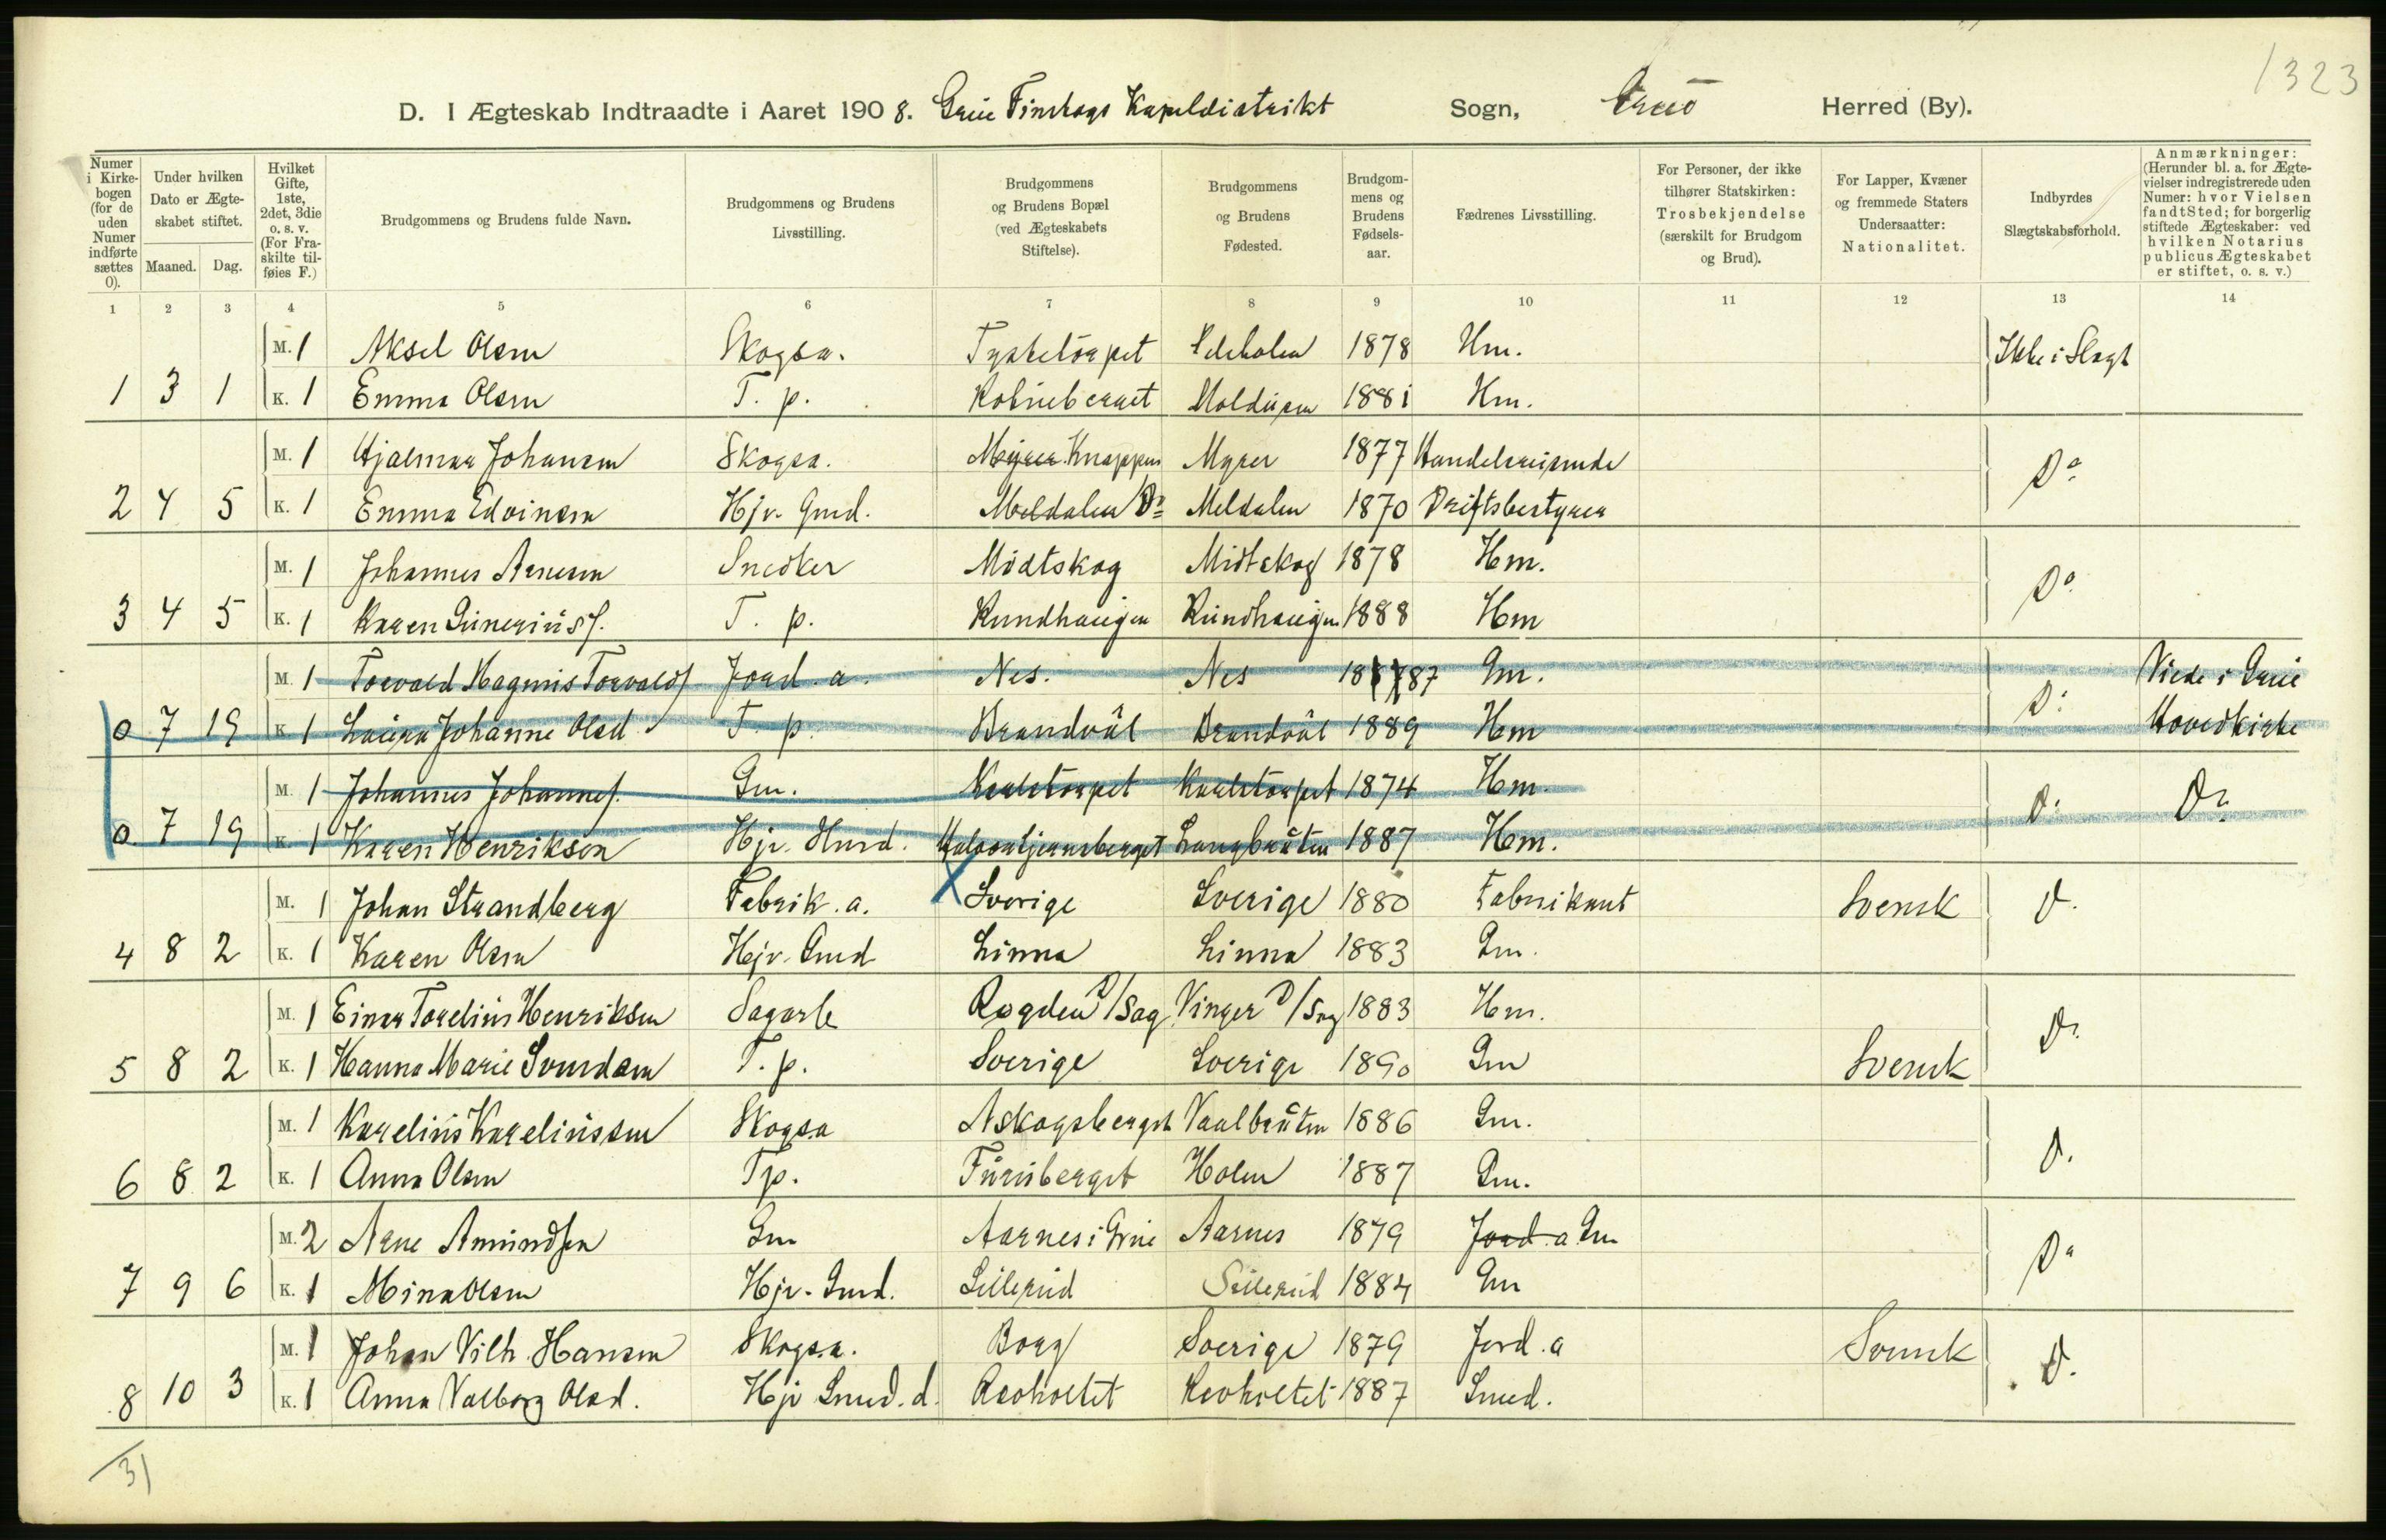 1323
D. I Ægteskab Indtraadte i Aaret 1908. Grue Finskogs Kapeldistrikt Sogn, Grue Herred (By).
Numer i Kirkebogen (for de uden Numer indførte sættes 0).
Under hvilken Dato er Ægteskabet stiftet.
Maaned. Dag.
Hvilket Gifte, 1ste, 2det, 3die o. s. v. (For Fraskilte tilføies F.)
Brudgommens og Brudens fulde Navn.
Brudgommens og Brudens Livsstilling.
Brudgommens og Brudens Bopæl (ved Ægteskabets Stiftelse).
Brudgommens og Brudens Fødested.
Brudgommens og Brudens Fødselsaar.
Fædrenes Livsstilling.
For Personer, der ikke tilhører Statskirken: Trosbekjendelse (særskilt for Brudgom og Brud).
For Lapper, Kvæner og fremmede Staters Undersaatter: Nationalitet.
Indbyrdes Slægtskabsforhold.
Anmærkninger: (Herunder bl. a. for Ægtevielser indregistrerede uden Numer: hvor Vielsen fandt Sted; for borgerlig stiftede Ægteskaber: ved hvilken Notarius publicus Ægteskabet er stiftet, o. s. v.)
1 2 3 4 5 6 7 8 9 10 11 12 13 14
M. 1 Aksel Olsen Skogsa. Tysketorpet 1878 Hm. Ikke i Slægt
1 3 1 K. 1 Emma Olsen T. p. 1881 Hm.
M. 1 Hjalmar Johansen Skogsa. Myrer Knappen Myrer 1877 Handelsreisende Do
2 4 5 K. 1 Emma Edvinsen Hjv. Gmd. Meldalen Do Meldalen 1870 Driftsbestyrer
M. 1 Johannes Arnesen Snedker Midtskog Midtskog 1878 Hm. Do
3 4 5 K. 1 Karen Guneriusf. T. p. Rundhaugen Rundhaugen 1888 Hm
M. 1 Torvald Magnus Torvaldf. Jord. a. Nes. Nes 1887 Gm. Do Viede i Grue
0 7 19 K 1 Laura Johanne Olsd. T. p. Brandvål Brandvål 1889 Hm Hovedkirke
M. 1 Johannes Johannesf. Gm. Karlstorpet Karlstorpet 1874 Hm. Do Do
0. 7 19 K. 1 Karen Henriksen Hjv. Husd. Langbråten 1887 Hm.
M. 1 Johan Strandberg Fabrik. a. X Sverige Sverige 1880 Fabrikant Svensk D.
4 8 2 K. 1 Karen Olsen Hjv. Gmd Linna Linna 1883 Gm.
M. 1 Einar Torelius Henriksen Sagarb Rogden D/Sag Vinger D/Sag 1883 Hm. Do
5 8 2 K. 1 Hanna Marie Svendsen T. p. Sverige Sverige 1890 Gm Svensk
M. 1 Karelius Kareliussen Skogs.a Askogsberget Vaalbråten 1886 Gm. D.
6 8 2 K. 1 Anna Olsen T p. Furuberget Holen 1887 Gm.
M. 2 Arne Amundsen Gm Aarnes i Grue Aarnes 1879 Jord. a Gm Do
7 9 6 K. 1 Mina Olsen Hjv. Gmd. Lillerud Lillerud 1884 Gm
M. 1 Johan Vilh. Hansen Skogs.a. Borg Sverige 1879 Jord. a Svensk D.
8 10 3 K. 1 Anna Valborg Olsd. Hjv Smed. d. Revholtet Revholtet 1887 Smed.
31